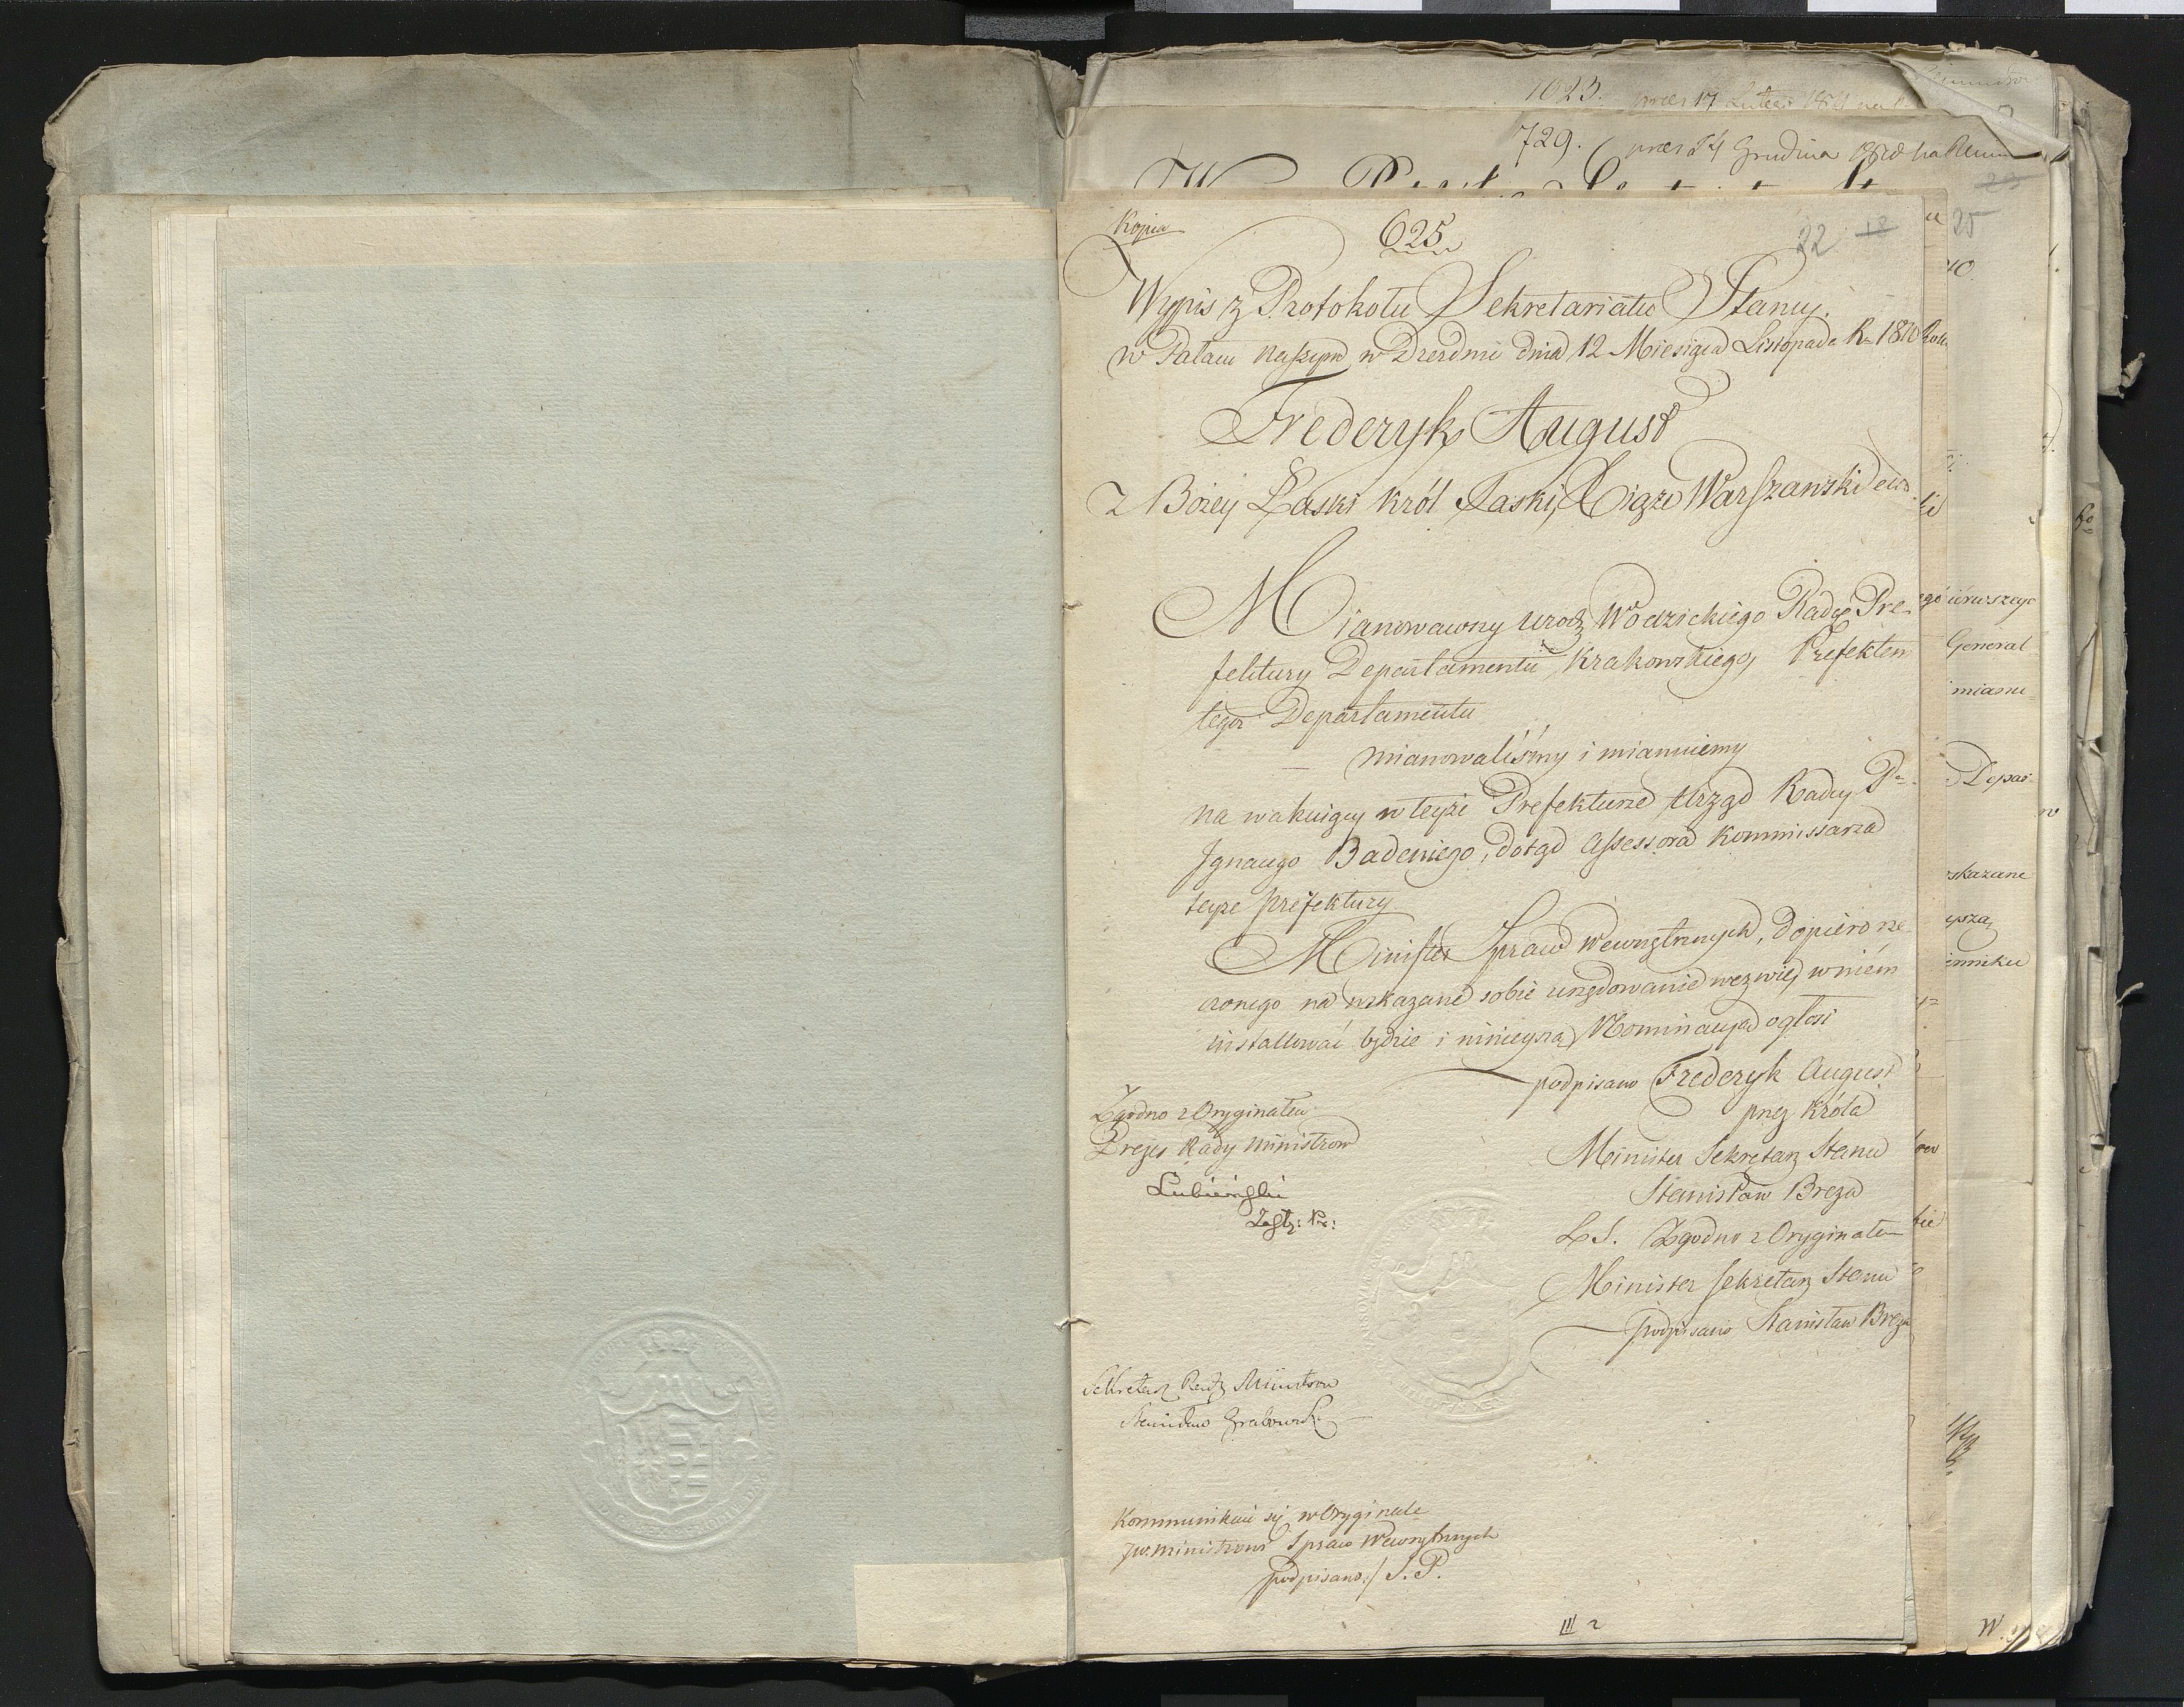 1023. prez 17 Lutego
729. prez 24 Grudnia 1810
Kopia
625
22 12
Wypis z Protokołu Sekretariatu Stanu.
w Pałacu naszym w Dreznie dnia 12 Miesiąca Listopada R. 1810 Roku
Frederyk August
z Bożey Łaski Król Saski, Xiąże Warszawski etc.
Mianowawszy Urodz Wodzickiego Radcę Pre-
fektury Departamentu Krakowskiego, Prefektem
tegoż Departamentu
mianowaliśmy i mianuiemy
na wakuiący w teyże Prefekturze Urząd Radcy Pa
Ignacego Badeniego, dotąd Assessora Kommissarza
teyże prefektury
Minister Spraw Wewnętrznych, dopiero rze
czonego na wskazane sobie urzędowanie wezwie, w niem
installować będzie i ninieyszą Nominacyą ogłosi
podpisano Frederyk August
przez Króla
Zgodno z Oryginałem
Prezes Rady Ministrow
Minister Sekretarz Stanu
Łubieński
Stanisław Breza
Zastę: Pr:
L.S. Zgodno z Oryginałem
Minister Sekretarz Stanu
podpisano Stanisław Breza
Sekretarz Rady Ministrow
Stanisław Grabowski
Kommunikuie się w Oryginale
Jw. Ministrowi Spraw Wewnętrznych
podpisano:/ S. P.
III 2
25
10.
ierwszego
General
mianu=
Depar
skazane